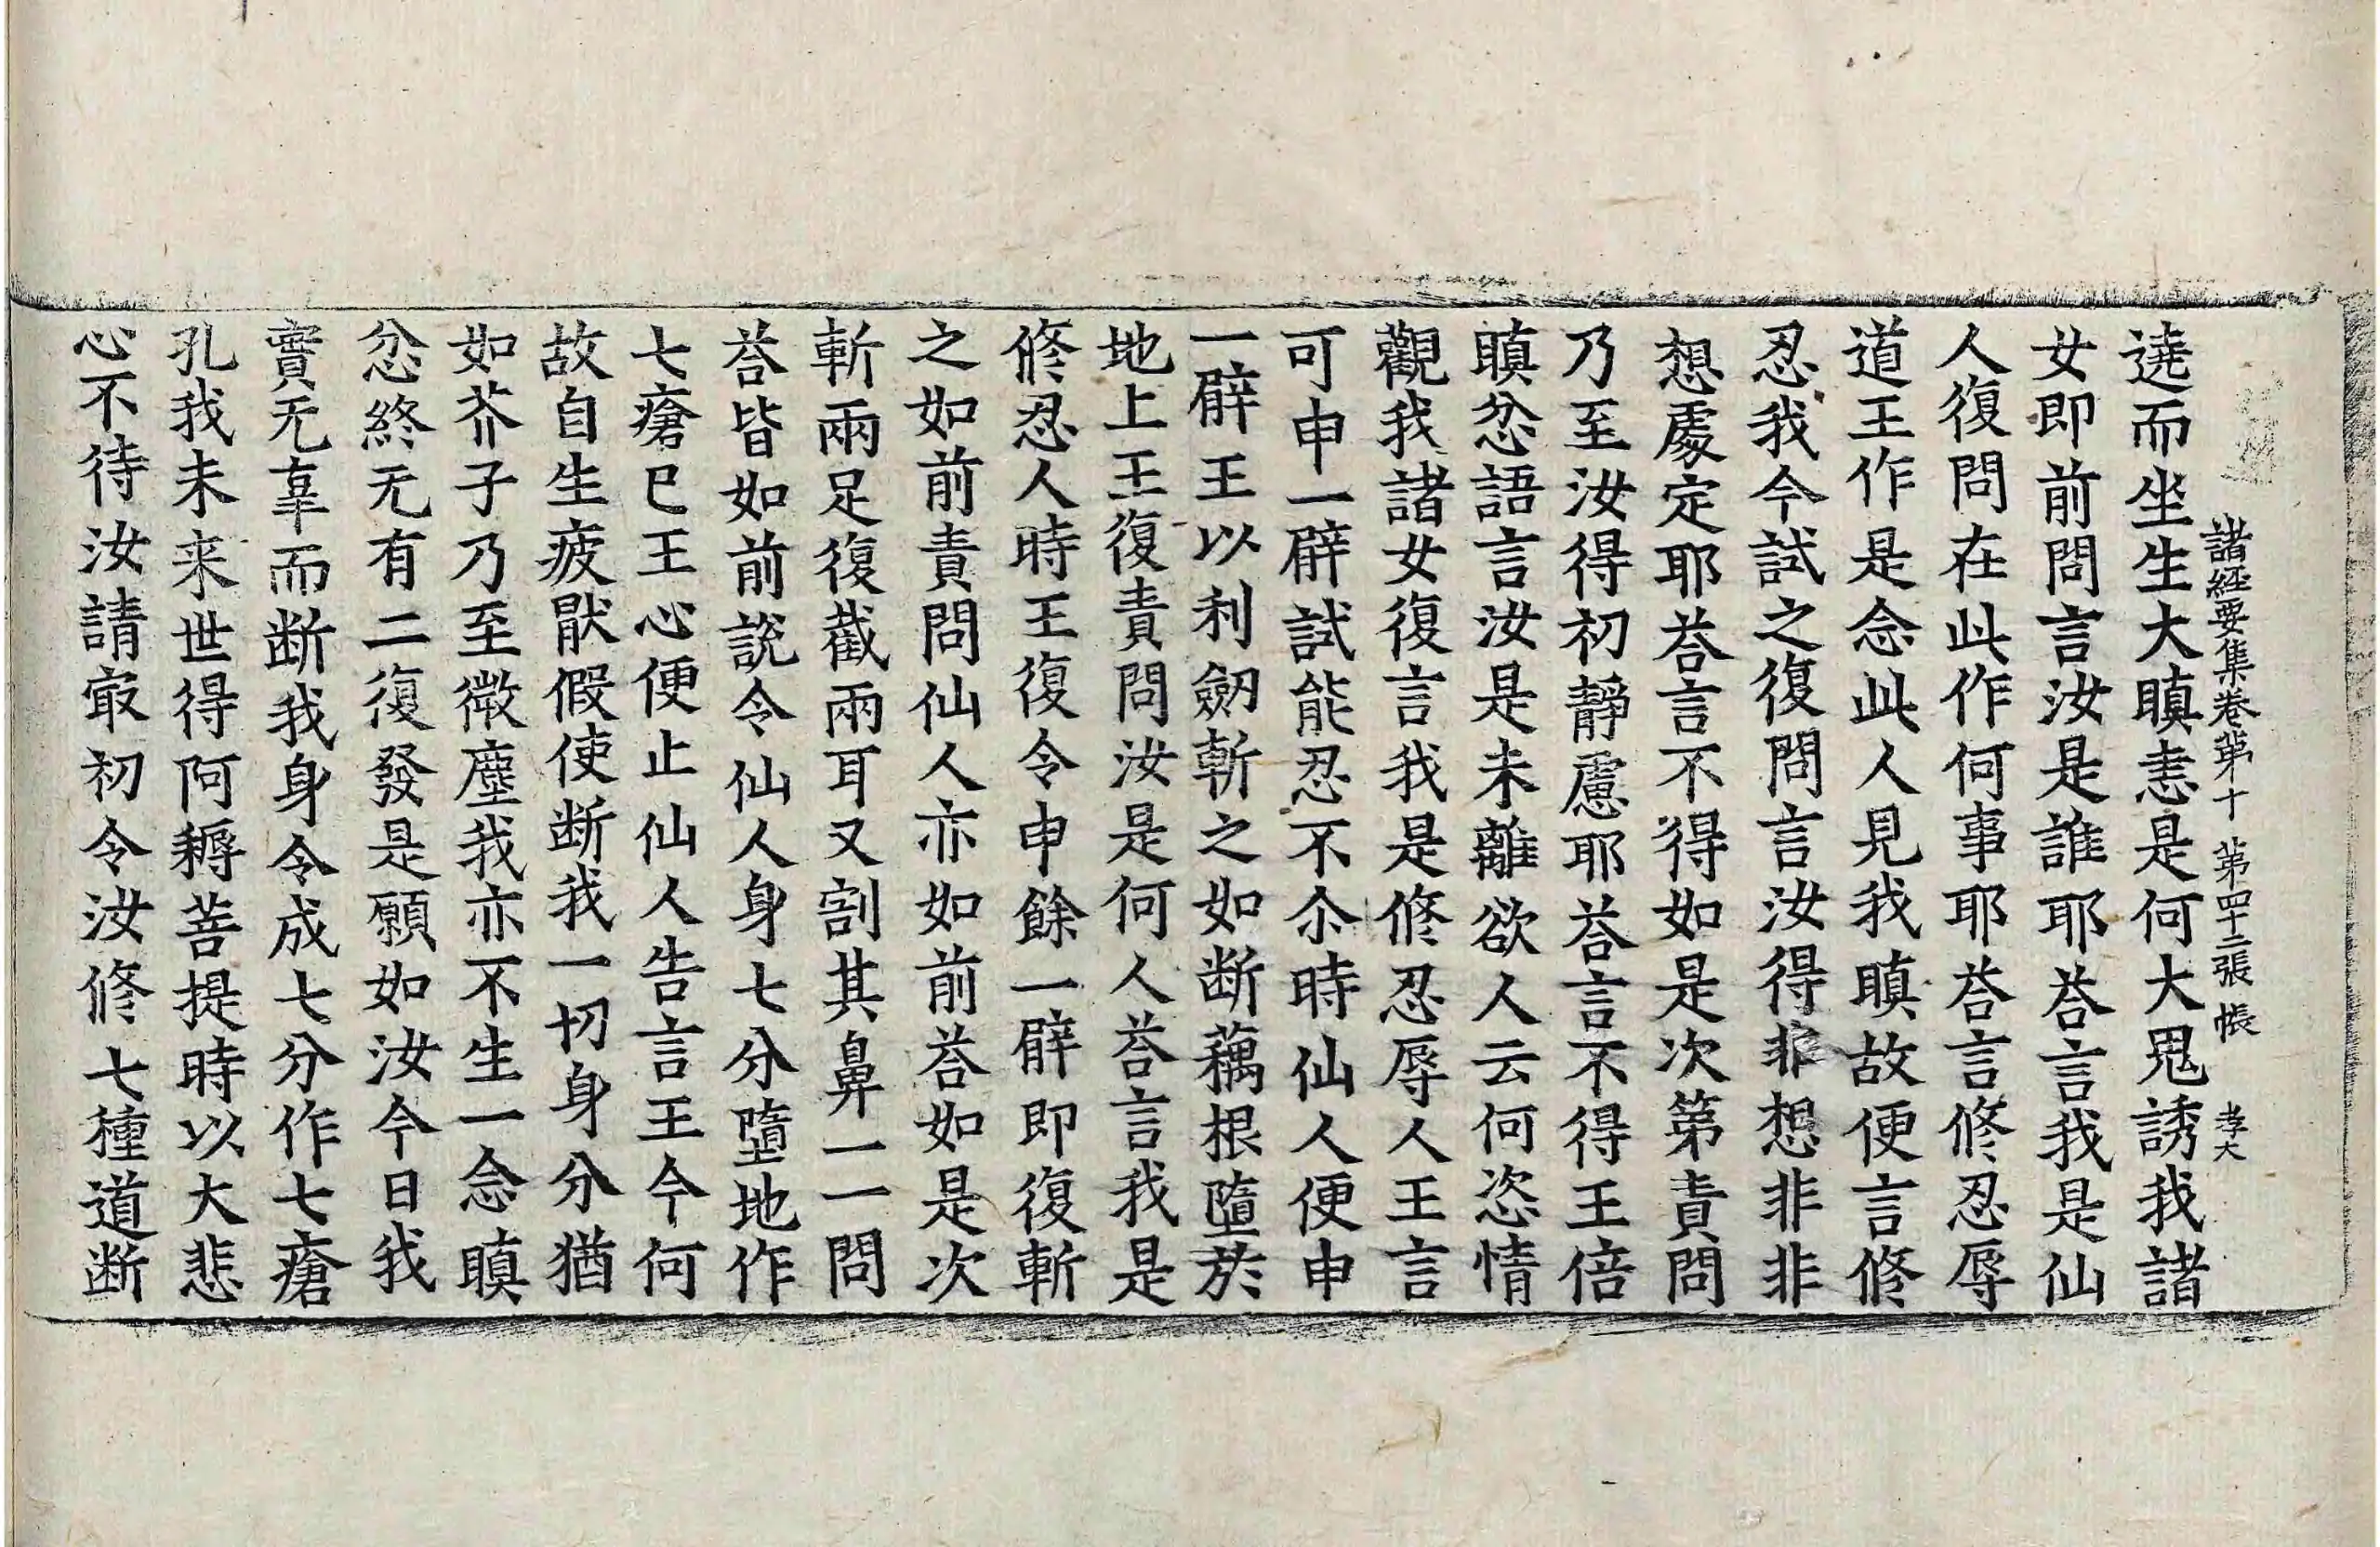 諸經要集卷第十 第四十二張 帳 孝大
遶而坐生大瞋恚是何大鬼誘我諸
女即前問言汝是誰耶荅言我是仙
人復問在此作何事耶荅言修忍辱
道王作是念此人見我瞋故便言修
忍我今試之復問言汝得非想非非
想處定耶荅言不得如是次第責問
乃至汝得初靜慮耶荅言不得王倍
瞋忿語言汝是未離欲人云何恣情
觀我諸女復言我是修忍辱人王言
可申一臂試能忍不尒時仙人便申
一臂王以利劒斬之如断藕根墮於
地上王復責問汝是何人荅言我是
修忍人時王復令申餘一臂即復斬
之如前責問仙人亦如前荅如是次
斬兩足復截兩耳又割其鼻一一問
荅皆如前說令仙人身七分墮地作
七瘡已王心便止仙人告言王今何
故自生疲猒假使断我一切身分猶
如芥子乃至微塵我亦不生一念瞋
忿終无有二復發是願如汝今日我
實无辜而断我身令成七分作七瘡
孔我未来世得阿耨菩提時以大悲
心不待汝請㝡初令汝修七種道断